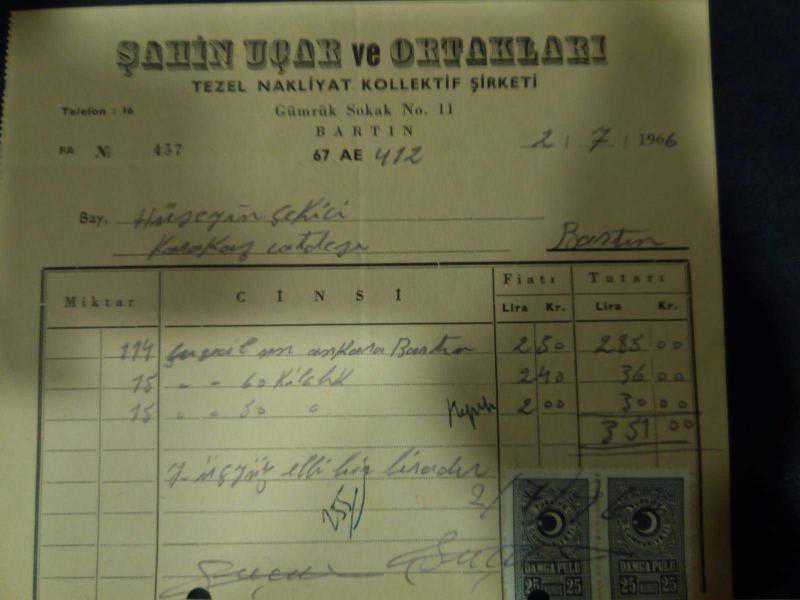 ŞAHİN UÇAR ve ORTAKLARI
TEZEL NAKLİYAT KOLLEKTİF ŞİRKETİ
Telefon : 16
Gümrük Sokak No. 11
BARTIN
FA № 457
67 AE 412
2 / 7 / 1966
Bay, Hüseyin Çekici
caddesi Bartın
Miktar CİNSİ Fiatı Tutarı
Lira Kr. Lira Kr.
114 un ankara Bartın 2 50 285 00
15 " " 60 Kiloluk 2 40 36 00
15 " " 50 " 2 00 30 00
351 00
Y. üçyüz elli bir liradır
2/7/66
DAMGA PULU DAMGA PULU
25 25 25 25